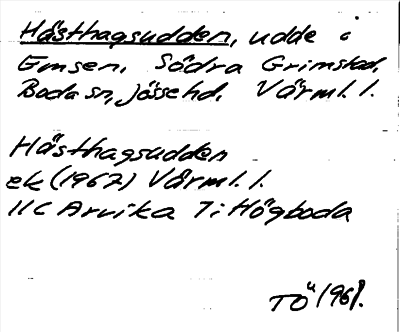 Hästhagsudden, udde i
Emsen. Södra Grimstad,
Boda sn, Jösse hd. Värml. l.
Hästhagsudden
ek (1967) Värml. l.
11C Arvika 7i Högboda
TÖ 1968.